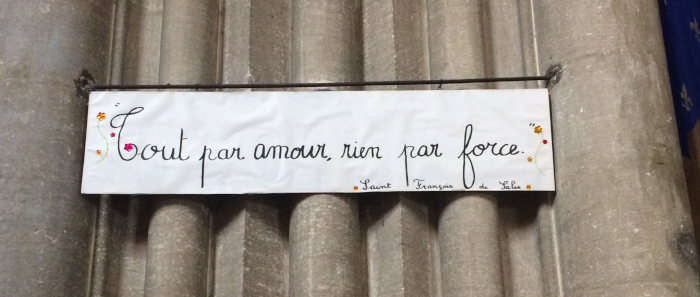 "Tout par amour, rien par force."
Saint François de Sales